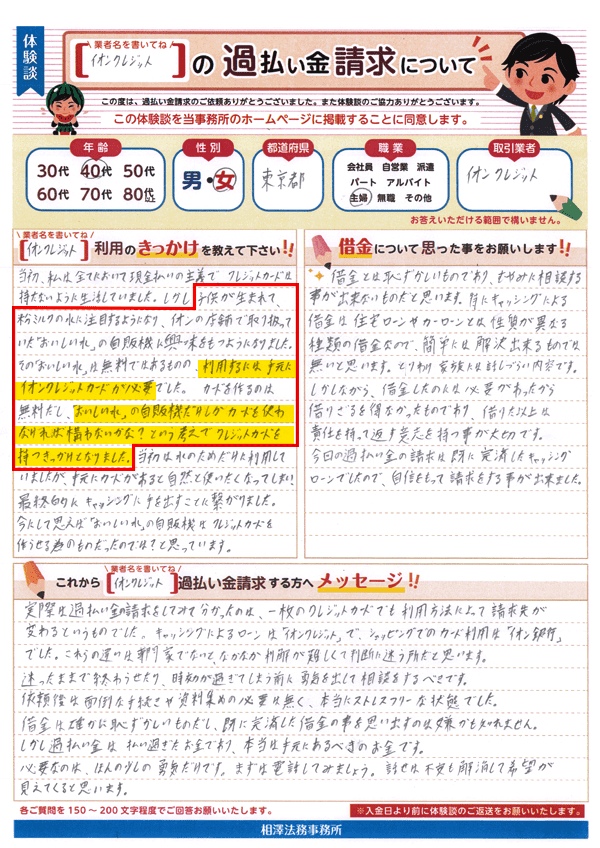 体験談
業者名を書いてね
イオンクレジット
の過払い金請求について
この度は、過払い金請求のご依頼ありがとうございました。また体験談のご協力ありがとうございます。
この体験談を当事務所のホームページに掲載することに同意します。
年齢
30代 40代 50代
60代 70代 80代以上
性別
男・女
都道府県
東京都
職業
会社員 自営業 派遣
パート アルバイト
主婦 無職 その他
取引業者
イオンクレジット
お答えいただける範囲で構いません。
業者名を書いてね
イオンクレジット 利用のきっかけを教えて下さい!!
当初、私は全てにおいて現金払いの主義で クレジットカードは
持たないように生活していました。しかし子供が生まれて、
粉ミルクの水に注目するようになり、イオンの店舗で取り扱って
いた「おいしい水」の自販機に興味をもつようになりました。
その「おいしい水」は無料ではあるものの、利用するには手元に
イオンクレジットカードが必要でした。カードを作るのは
無料だし、「おいしい水」の自販機だけしかカードを使わ
なければ構わないかな?という考えでクレジットカードを
持つきっかけとなりました。当初は水のためだけに利用して
いましたが、手元にカードがあると自然と使いたくなってしまい、
最終的にキャッシングに手を出すことに繋がりました。
今にして思えば「おいしい水」の自販機はクレジットカードを
作らせる為のものだったのでは?と思っています。
借金について思った事をお願いします!!
借金とは恥ずかしいものであり、むやみに相談する
事が出来ないものだと思います。特にキャッシングによる
借金は住宅ローンやカーローンとは性質が異なる
種類の借金なので、簡単には解決出来るものでは
無いと思います。とりわけ家族には話しづらい内容です。
しかしながら、借金したのには必要があったから
借りざるを得なかったものであり、借りた以上は
責任を持って返す覚悟を持つ事が大切です。
今回の過払い金の請求は既に完済したキャッシング
ローンでしたので、自信をもって請求をする事が出来ました。
業者名を書いてね
これから イオンクレジット 過払い金請求する方へメッセージ!!
実際に過払い金の請求をしてみて分かったのは、一枚のクレジットカードでも利用方法によって請求先が
変わるというものでした。キャッシングによるローンは「イオンクレジット」で、ショッピングでのカード利用は「イオン銀行」
でした。これらの違いは専門家でないと、なかなか判解が難しくて判断に迷う所だと思います。
迷ったままで終わらせたり、時効が過ぎてしまう前に勇気を出して相談をするべきです。
依頼後は面倒な手続きや資料集めの必要は無く、本当にストレスフリーな状態でした。
借金は確かに恥ずかしいものだし、既に完済した借金の事を思い出すのは嫌かも知れません。
しかし過払い金は払い過ぎたお金であり、本当は手元にあるべきのお金です。
必要なのは、ほんの少しの勇気だけです。まずは電話してみましょう。話せば不安も解消して希望が
見えてくると思います。
各ご質問を150~200文字程度でご回答お願いいたします。
※入金日より前に体験談のご返送をお願いいたします。
相澤法務事務所